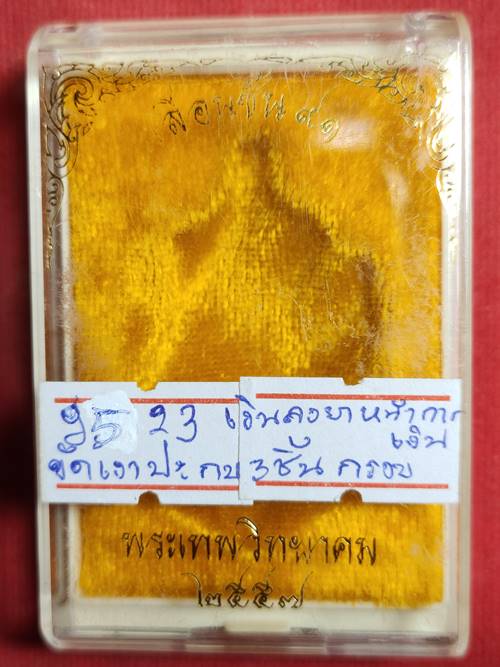 เลื่อนชั้น ๙๑
95 23 เงินลงยาหน้ากาก
เงิน
ขัดเงาประกบ 3 ชิ้น กรอบ
พระเทพวิทยาคม
๒๕๕๗